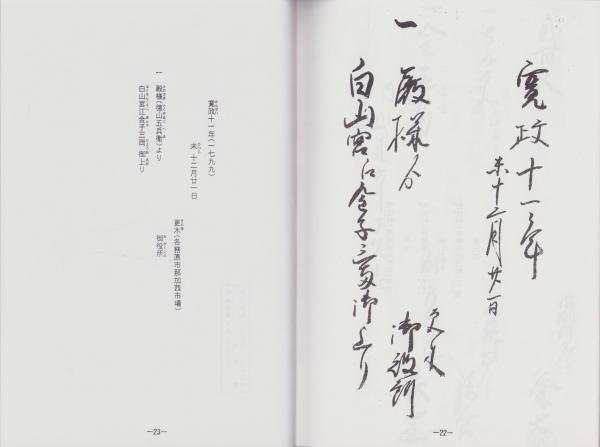 寛政十一年
未十二月廿一日
更木
御役所
一 殿様ゟ
白山宮江金子三両御上り
―22―
寛政十一年(一七九九)
未 十二月廿一日
更木(各務原市那加西市場)
御役所
一 殿様(徳山五兵衛)より
白山宮江金子三両、御上り
―23―